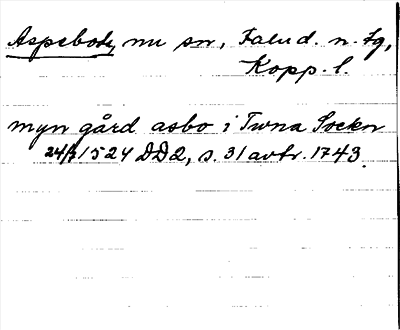 Aspeboda, nu sn, Falu d. n. tg,
Kopp. l.
myn gård asbo i Twna Sockn
24/3 1524 DD2, s. 31 avtr. 1743.